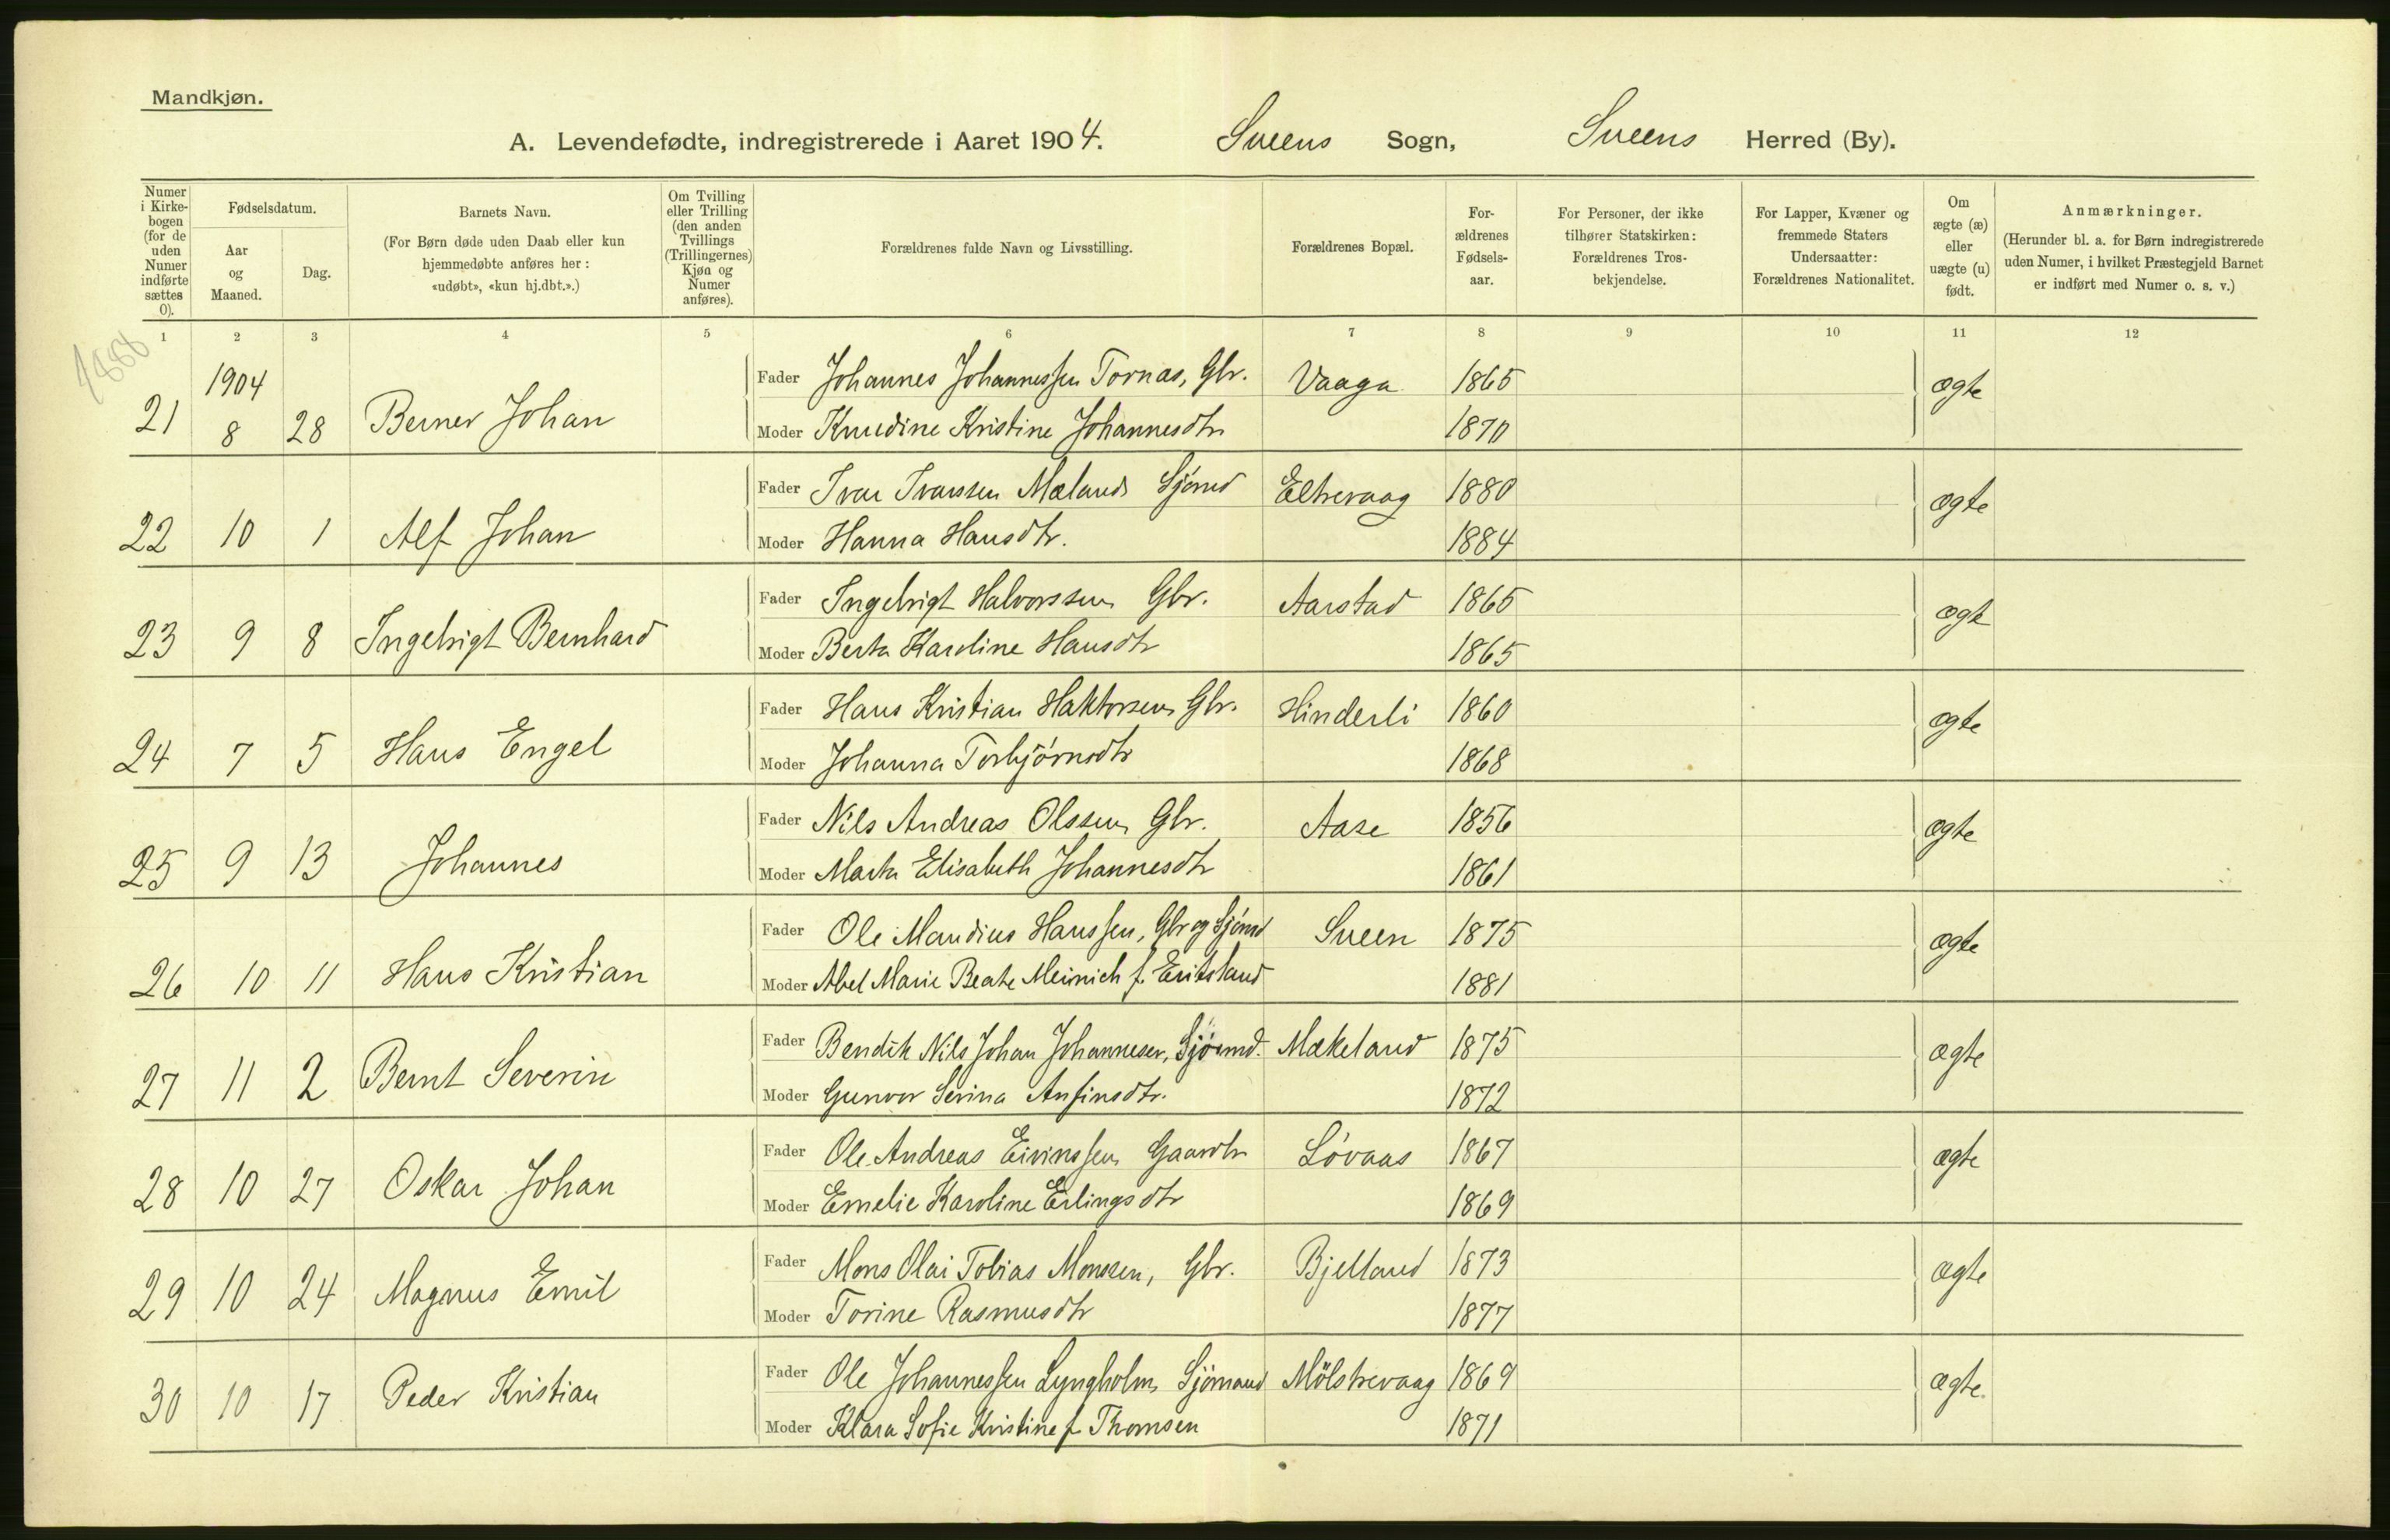 Mandkjøn.
A. Levendefødte, indregistrerede i Aaret 1904. Sveens Sogn, Sveens Herred (By).
Numer i Kirke-bogen (for de uden Numer indførte sættes 0).
Fødselsdatum.
Aar og Maaned.
Dag.
Barnets Navn.
(For Børn døde uden Daab eller kun hjemmedøbte anføres her: «udøbt», «kun hj.dbt.».)
Om Tvilling eller Trilling (den anden Tvillings (Trillingernes) Kjøn og Numer anføres).
Forældrenes fulde Navn og Livsstilling.
Forældrenes Bopæl.
For-ældrenes Fødsels-aar.
For Personer, der ikke tilhører Statskirken: Forældrenes Tros-bekjendelse.
For Lapper, Kvæner og fremmede Staters Undersaatter: Forældrenes Nationalitet.
Om ægte (æ) eller uægte (u) født.
Anmærkninger.
(Herunder bl. a. for Børn indregistrerede uden Numer, i hvilket Præstegjeld Barnet er indført med Numer o. s. v.)
1 2 3 4 5 6 7 8 9 10 11 12
1904
21 8 28 Berner Johan Fader Johannes Johannessen Tornas, Gbr. Vaaga 1865 ægte
Moder Knudine Kristine Johannesdtr 1870
22 10 1 Alf Johan Fader Ivar Ivarssen Mæland Sjömd Eltrevaag 1880 ægte
Moder Hanna Hansdtr. 1884
23 9 8 Ingebrigt Bernhard Fader Ingebrigt Halvorssen Gbr. Aarstad 1865 ægte
Moder Berta Karoline Hansdtr 1865
24 7 5 Hans Engel Fader Hans Kristian Haktorsen Gbr. Hinderli 1860 ægte
Moder Johanna Torbjörnsdtr 1868
25 9 13 Johannes Fader Nils Andreas Olssen Gbr. Aase 1856 ægte
Moder Marta Elisabeth Johannesdtr 1861
26 10 11 Hans Kristian Fader Ole Mandius Hanssen, Gbr og Sjömd Sveen 1875 ægte
Moder Abel Marie Beate Meinich f. 1881
27 11 2 Bernt Severin Fader Bendik Nils Johan Johannesen, Sjömd. Mækeland 1875 ægte
Moder Gunvor Serina Anfinsdtr. 1872
28 10 27 Oskar Johan Fader Ole Andreas Eivinssen Gaardbr Lövaas 1867 ægte
Moder Emelie Karoline Erlingsdtr 1869
29 10 24 Magnus Emil Fader Mons Olai Tobias Monssen, Gbr. Bjelland 1873 ægte
Moder Torine Rasmusdtr 1877
30 10 17 Peder Kristian Fader Ole Johannessen Lyngholm Sjömand Mölstrevaag 1869 ægte
Moder Klara Sofie Kristine f Thomsen 1871